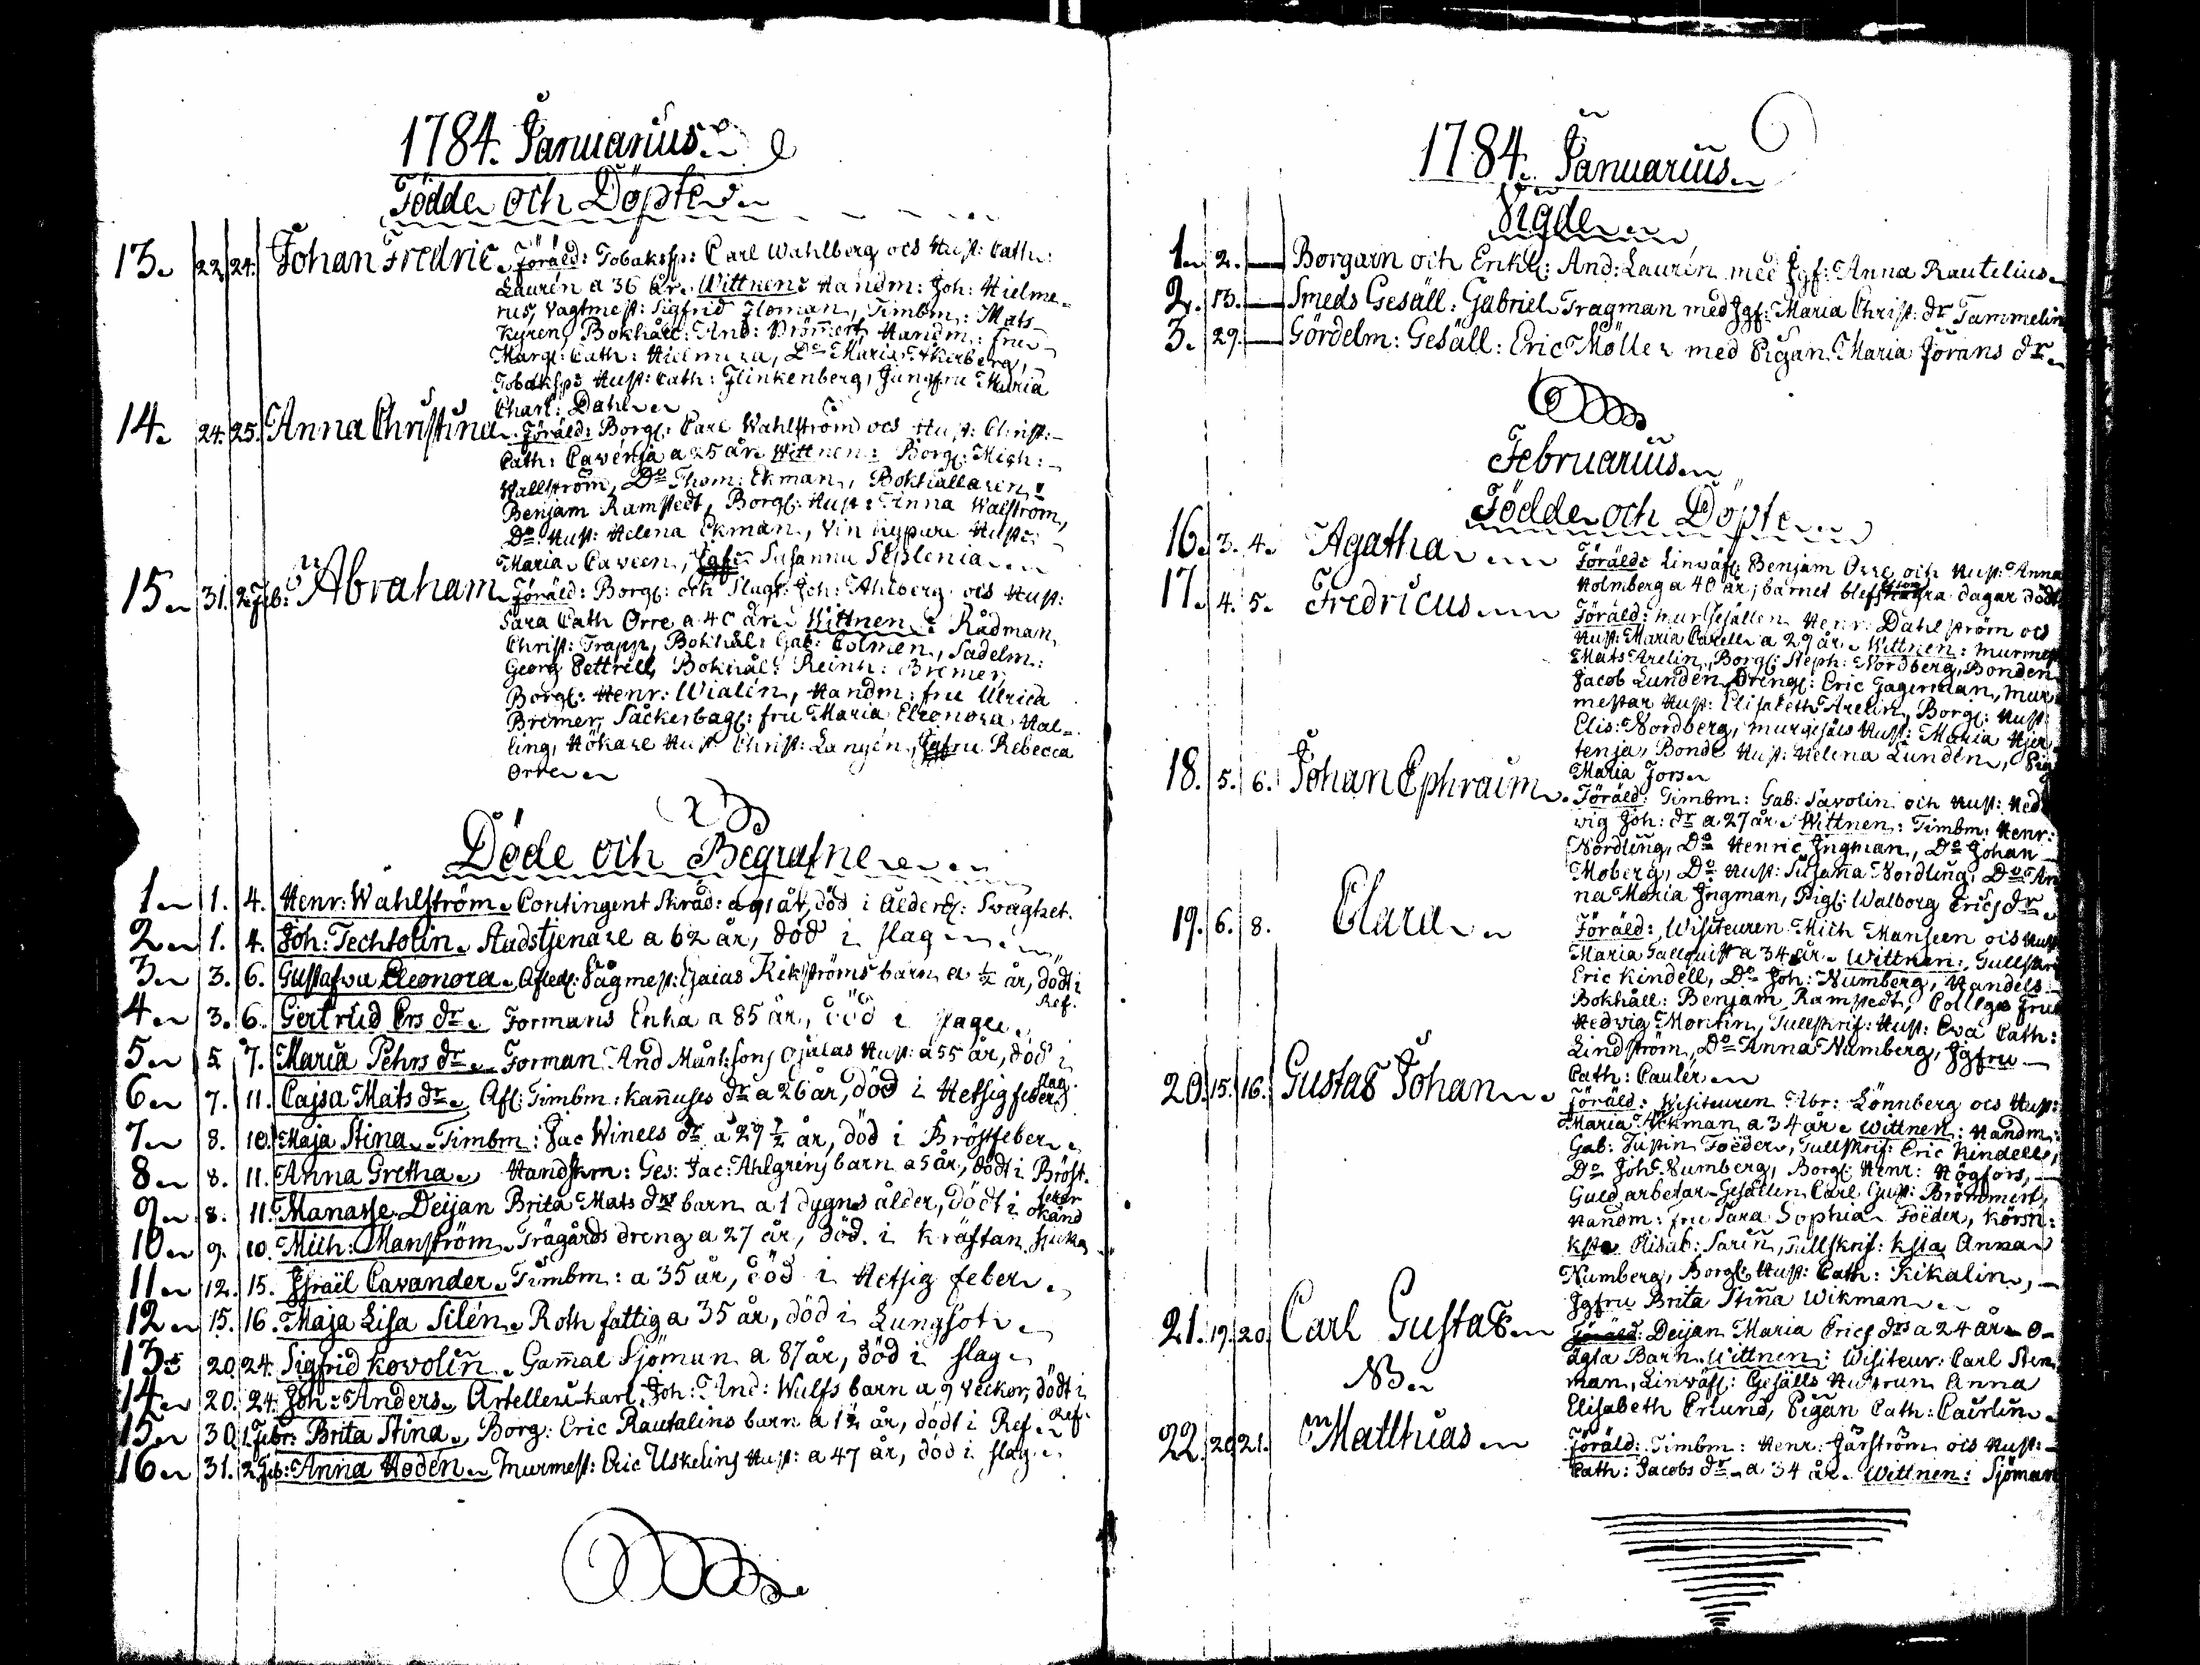 1784. Januarius.
Födde och Döpte
13. 22. 24. Johan Fredric. Föräld: Tobakssp: Carl Wahlberg ocs Hust: Cath:
Laurén a 36 år. Wittnen: Handm: Joh: Hielme-
rus, Vagtmest: Sigfrid Floman, Timbm: Mats
Kyren, Bokhåll: And: Brömert, Handm: fru
Marg: Cath: Hielmera, Do Maria Åkerberg,
Tobakssps Hust: Cath: Flinkenberg, Jungfru Maria
Charl: Dahl
14. 24. 25. Anna Christina. Föräld: Borg: Carl Wahlström ocs Hust: Christ:
Cath: Cavenja a 25 år. Wittnen: Borg: Mich:
Wallström, Do Thom: Ekman, Bokhållaren
Benjam Ramstedt, Borg: Hust: Anna Walström,
Do Hust: Helena Ekman, Vin Hust:
Maria Caveen, Jgfr Susanna Seplenia
15. 31. 2 Feb: Abraham. Föräld: Borg: och Slagt: Joh: Ahlberg ocs Hust:
Sara Cath Orre a 40 år. Wittnen: Rådman
Christ: Trapp, Bokhål: Gab: Colmen, Sadelm:
Georg Pettrell, Bokhål: Reinh: Bremer,
Borg: Henr: Wialén, Handm: fru Ulrica
Bremer, Såckerbag: fru Maria Eleonora Hal-
ling, Hökare Hust Christ: Langén, Jgfru Rebecca
Orre
Döde och Begrafne
1. 1. 4. Henr: Wahlström. Contingent Skräd: a 91 år, död i Ålderd: Svaghet.
2. 1. 4. Joh: Techtolin. Stadstjenare a 62 år, död i slag
3. 3. 6. Gustafva Eleonora. Afled: Sågmest: Esaias Kikströms barn a ½ år, dödt i
Ref.
4. 3. 6. Gertrud Ers dr. Formans Enka a 85 år, död i slag
5. 5. 7. Maria Pehrs dr. Forman And Mårt:sons Ojalas Hust: a 55 år, död i
slag.
6. 7. 11. Cajsa Mats dr. Afl: Timbm: Kannuses dr a 26 år, död i Hetsig feber
7. 8. 10. Maja Stina. Timbm: Jac Winels dr a 29 ½ år, död i Bröstfeber
8. 8. 11. Anna Gretha. Handskm: Ges: Jac: Ahlgrens barn a 5 år, dödt i Bröst.
feber
9. 8. 11. Manasse. Deijan Brita Mats drs barn a 1 dygns ålder, dödt i okänd
sjuka
10. 9. 10. Mich: Manström. Trägårds dreng a 27 år, död i kräftan
11. 12. 15. Israël Cavander. Timbm: a 35 år, död i Hetsig feber
12. 15. 16. Maja Lisa Silén. Roth fattig a 35 år, död i Lungsot
13. 20. 24. Sigfrid Kovolin. Gammal Sjöman a 87 år, död i slag
14. 20. 24. Joh: Anders. Artelleri karl. Joh: And: Wulfs barn a 9 Veckor, dödt i
Ref.
15. 30. 1 Febr: Brita Stina. Borg: Eric Rautalins barn a 1½ år, dödt i Ref.
16. 31. 2. Feb: Anna Hodén. Murmest: Eric Uskelins Hust: a 47 år, död i slag
1784. Januarius
Vigde
1. 2. Borgarn och Enkl: And: Laurén med Jgf: Anna Rautelius
2. 13. Smeds Gesäll: Gabriel Fragman med Jgf: Maria Christ: dr Tammelin
3. 29. Gördelm: Gesäll: Eric Möller med Pigan Maria Jörans dr
Februarius
Födde och Döpte
16. 3. 4. Agatha Föräld: Linväf: Benjam Orre och Hust: Anna
Holmberg a 40 år; barnet blef några dagar dödt
17. 4. 5. Fredricus Föräld: mur Gesällen Henr: Dahlström ocs
Hust: Maria Carell a 29 år. Wittnen: murmest
Mats Arelin, Borg: Steph: Nordberg, Bonden
Jacob Lunden, Dreng: Eric Gagerman, mur
mestar Hust: Elisabeth Arelin, Borg: Hust:
Elis: Nordberg, murgesäls Hust: Maria Hjer
tenja, Bonde Hust: Helena Lunden, Pig
Maria Jors
18. 5. 6. Johan Ephraim. Föräld: Timbm: Gab: Savolin och Hust: Hed
vig Joh: dr a 27 år. Wittnen: Timbm: Henr:
Nordling, Do Henric Ingman, Do Johan
Moberg, Do Hust: Susana Nordling, Do An
na Maria Ingman, Pig: Walborg Erics dr
19. 6. 8. Clara Föräld: Visiteuren Mich Manseen ocs Hust
Maria Gallquist a 34 år. Wittnen: Tullskri
Eric Kindell, Do Joh: Numberg, Handels
Bokhåll: Benjam Ramstedt, Collega Frue
Hedvig Montin, Tullskrif: Hust: Eva Cath:
Lindström, Do Anna Numberg, Jgfru
Cath: Caulér
20. 15. 16. Gustaf Johan Föräld: Visiteuren Abr: Lönnberg ocs Hust:
Maria Åckman a 34 år. Wittnen: Handm:
Gab: Justin Foëder, Tullskrif: Eric Kindell,
Do Joh: Numberg, Borg: Henr: Högfors,
Guld arbetar Gesällen Carl Gust: Brönnmert,
Handm: fru Sara Sophia Foëder, Körsn:
Ksta Elisab: Sarin, Tullskrif: Ksta Anna
Numberg, Borg: Hust: Cath: Kikalin,
Jgfru Brita Stina Wikman
21. 19. 20. Carl Gustaf Föräld: Deijan Maria Erics drs a 24 år o-
NB ägta Barn. Wittnen: Visiteur: Carl Sten
man, Linväf: Gesälls Hustrun Anna
Elisabeth Erlund, Pigan Cath: Caurlin
22. 20. 21. Matthias Föräld: Timbm: Henr: Järström ocs Hust:
Cath: Jacobs dr a 34 år. Wittnen: Sjöman